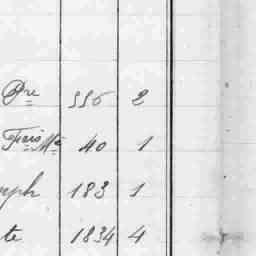 Pre 556 2
40 1
mph 183 1
te 1834 4